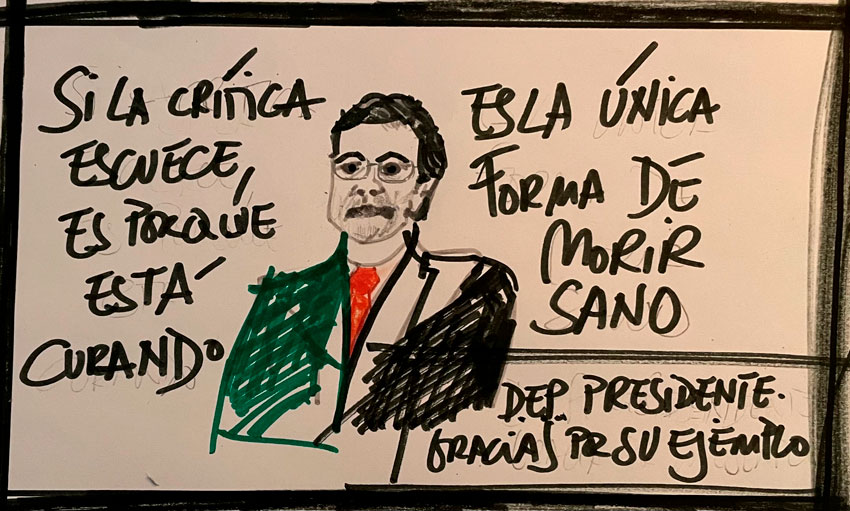 SI LA CRÍTICA
ESCUECE,
ES PORQUE
ESTÁ
CURANDO
ES LA ÚNICA
FORMA DE
MORIR
SANO
D.E.P. PRESIDENTE.
GRACIAS POR SU EJEMPLO